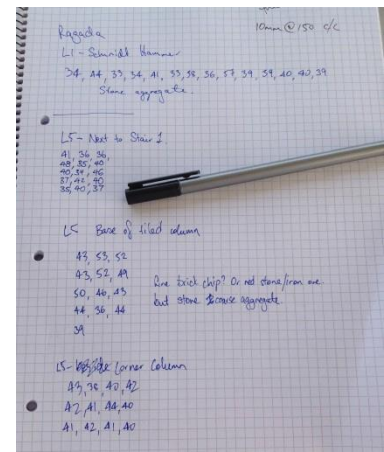 10mm @ 150 c/c
L1 - Schmidt Hammer
34, 44, 33, 34, 41, 33, 38, 36, 57, 39, 39, 40, 40, 39
Stone aggregate.
L5 - Next to Stair 1.
41, 36, 36,
48, 35, 40
40, 39, 46
37, 42, 40
35, 40, 37
L5 Base of tiled column
43, 53, 52
43, 52, 49
50, 46, 43
44, 36, 44
39
fine brick chip? Or red stone/iron ore
but stone coarse aggregate.
L5 - Corner Column
43, 38, 40, 42
42, 41, 44, 40
41, 42, 41, 40